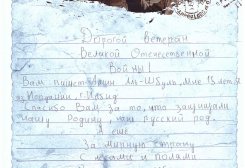 Дорогой ветеран
Великой Отечественной
Войны!
Вам пишет Мне 13 лет. Я
из Иордании, г.
Спасибо Вам за то, что защищали
нашу Родину, наш русский род.
А ещё
За мирную страну
С лесами и полями